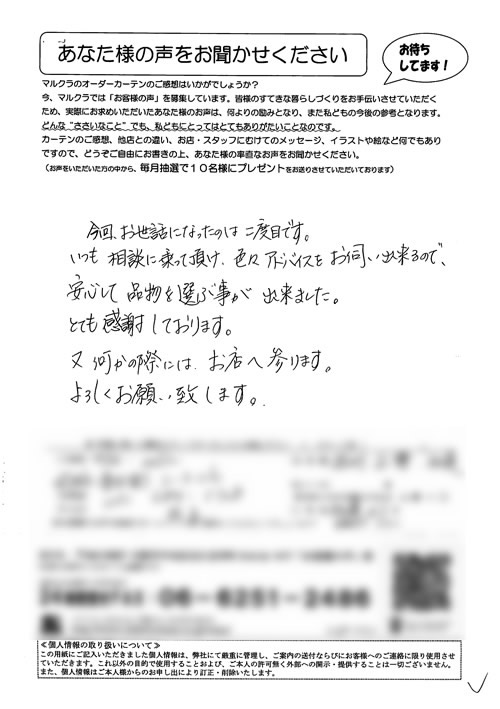 あなた様の声をお聞かせください
お待ち
してます！
マルクラのオーダーカーテンのご感想はいかがでしょうか？
今、マルクラでは「お客様の声」を募集しています。皆様のすてきな暮らしづくりをお手伝いさせていただく
ため、実際にお求めいただいたあなた様のお声は、何よりの励みとなり、また私どもの今後の参考となります。
どんな“ささいなこと”でも、私どもにとってはとてもありがたいことなのです。
カーテンのご感想、他店との違い、お店・スタッフにむけてのメッセージ、イラストや絵など何でもあり
ですので、どうぞご自由にお書きの上、あなた様の率直なお声をお聞かせください。
（お声をいただいた方の中から、毎月抽選で１０名様にプレゼントをお送りさせていただいております）
今回、お世話になったのは二度目です。
いつも相談に乗って頂け、色々アドバイスをお伺い出来るので、
安心して品物を選ぶ事が出来ました。
とても感謝しております。
又何かの際には、お店へ参ります。
よろしくお願い致します。
06-6251-2486
≪個人情報の取り扱いについて≫
この用紙にご記入いただきました個人情報は、弊社にて厳重に管理し、ご案内の送付ならびにお客様へのご連絡に限り使用させ
ていただきます。これ以外の目的で使用することおよび、ご本人の許可無く外部への開示・提供することは一切ございません。
また、個人情報はご本人様からのお申し出により訂正・削除いたします。